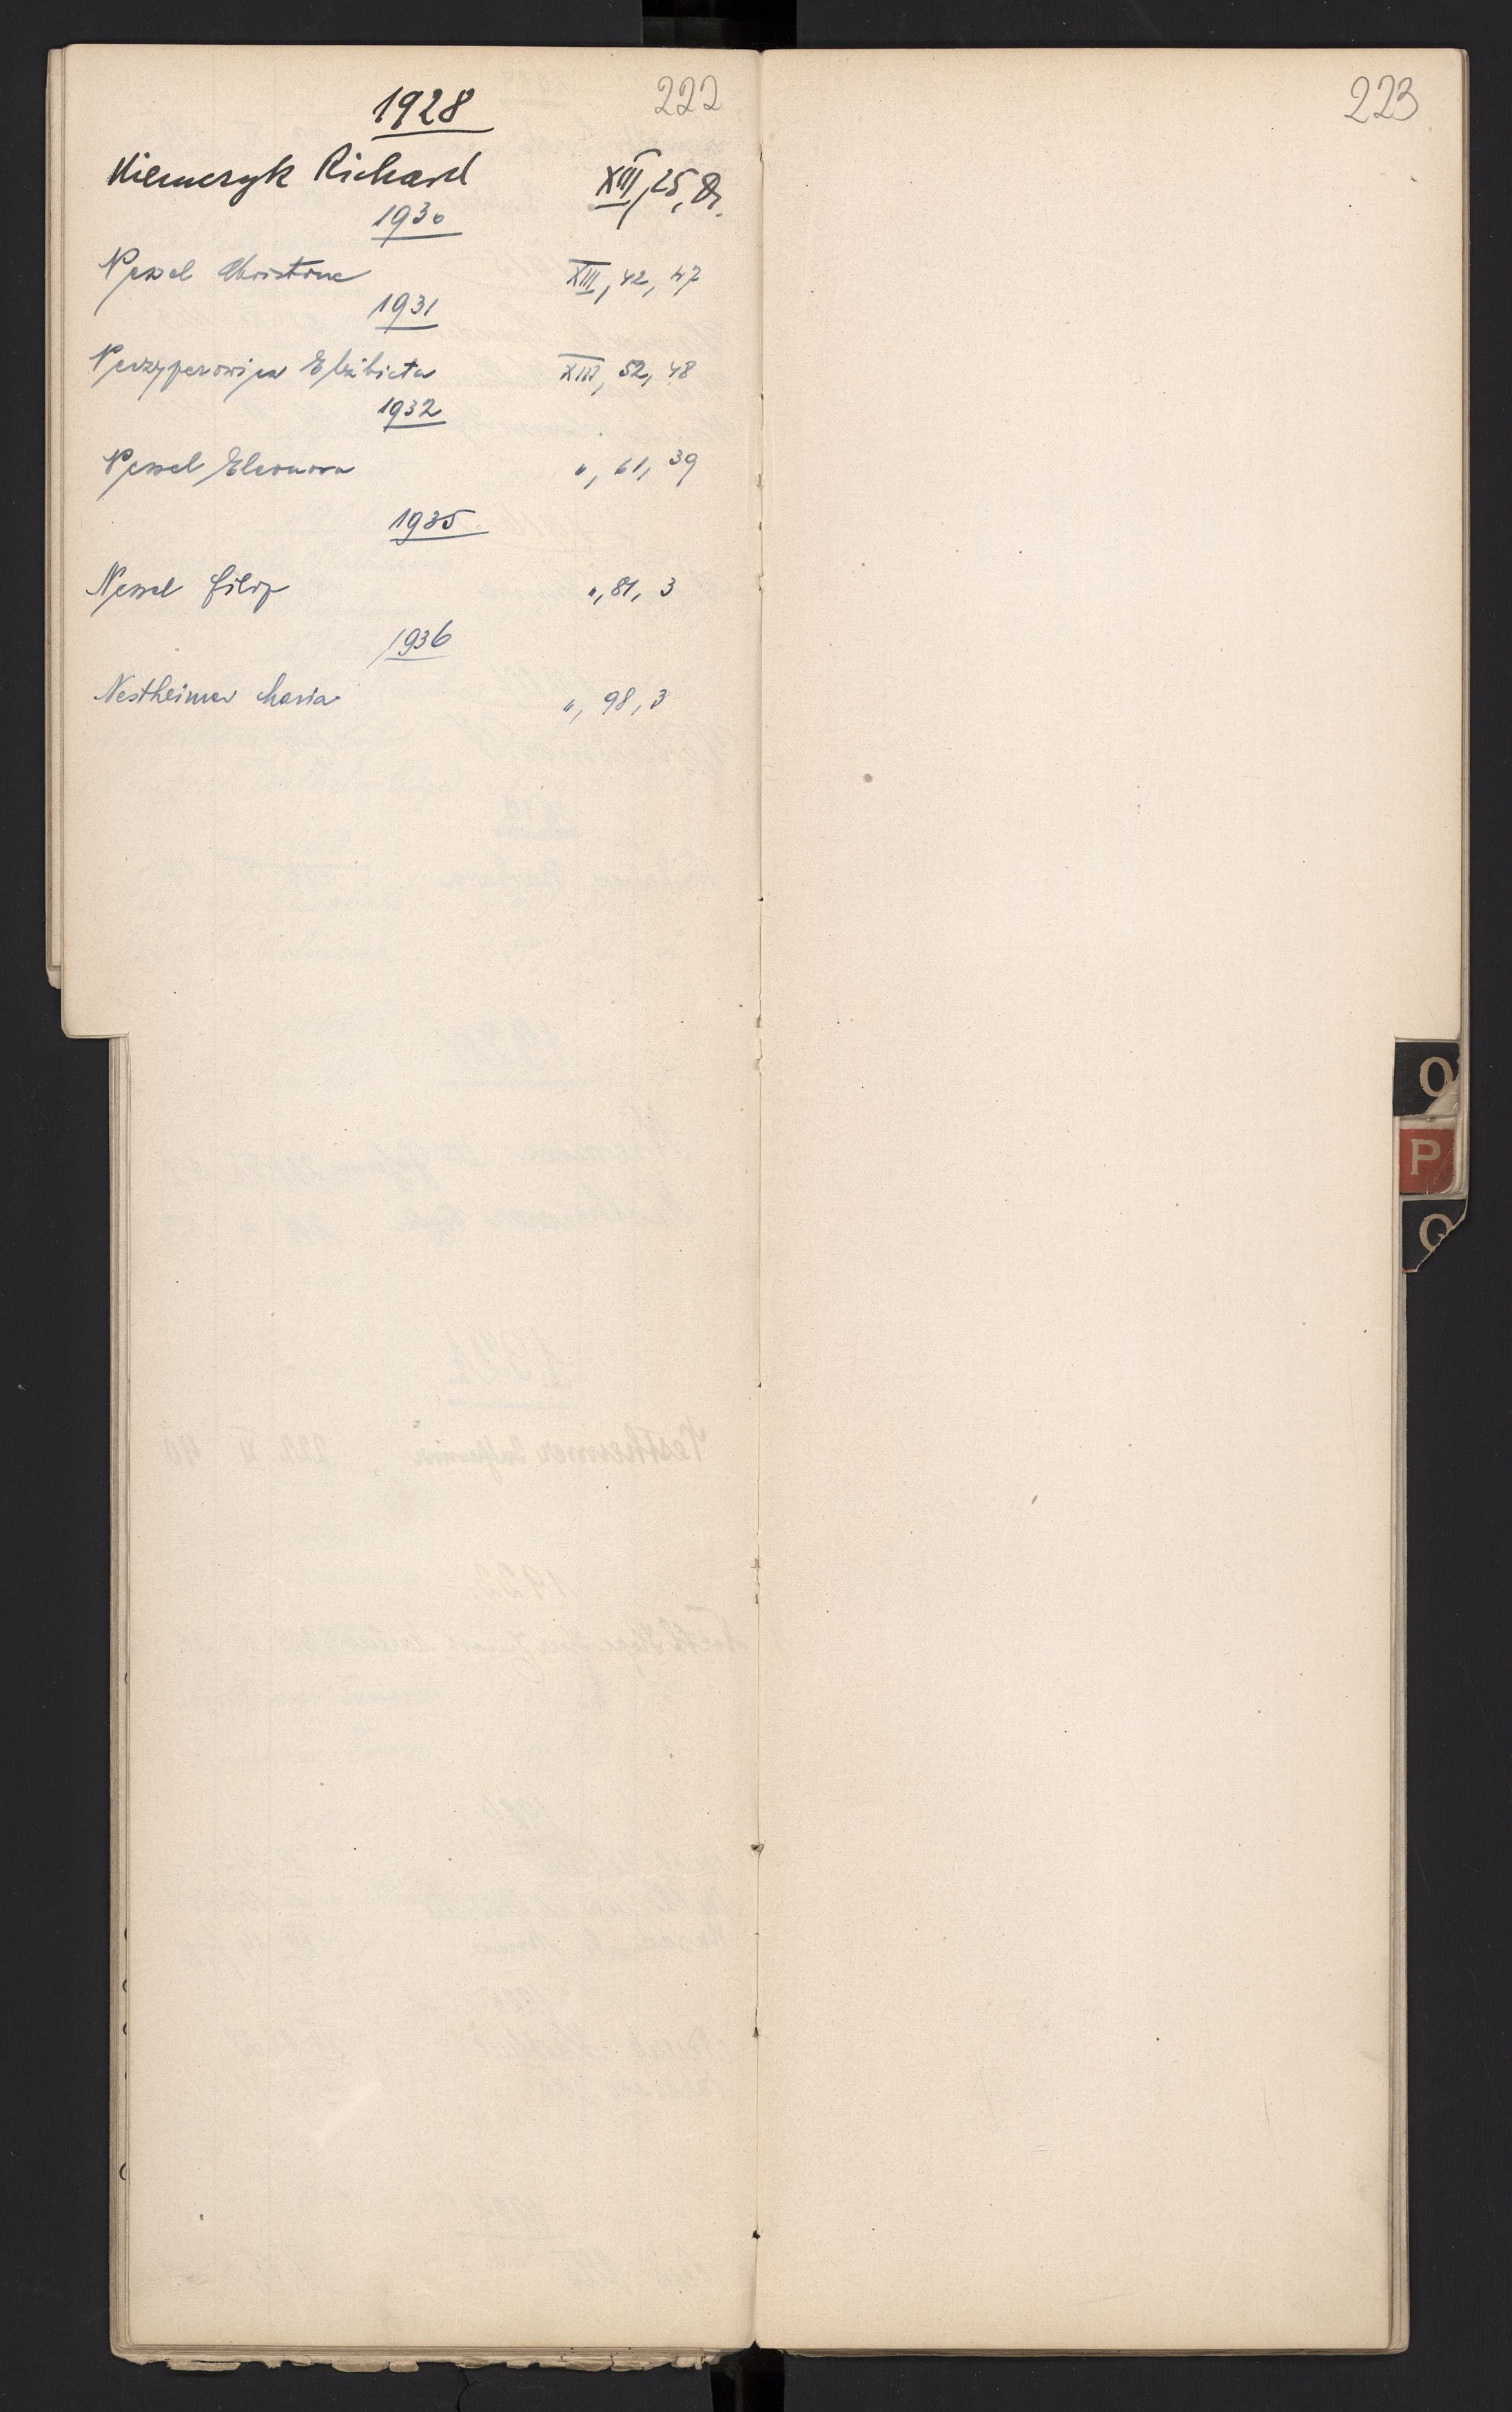 222
1928
Niemczyk Richard XIII, 25, 8.
1930
Nessel Christine XIII, 42, 47
1931
Elżbieta XIII, 52, 48
1932
Nessel Eleonora ", 61, 39
1935
Nessel Filip ", 81, 3
1936
Nestheimer Maria ", 98, 3
223
O
P
Q